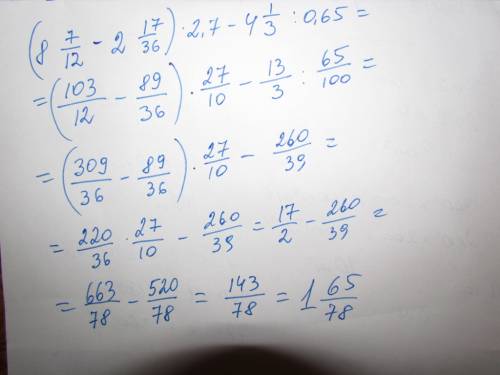 (8 7/12 - 2 17/36) · 2,7 - 4 1/3 : 0,65 =
= (103/12 - 89/36) · 27/10 - 13/3 : 65/100 =
= (309/36 - 89/36) · 27/10 - 260/39 =
= 220/36 · 27/10 - 260/39 = 17/2 - 260/39 =
= 663/78 - 520/78 = 143/78 = 1 65/78